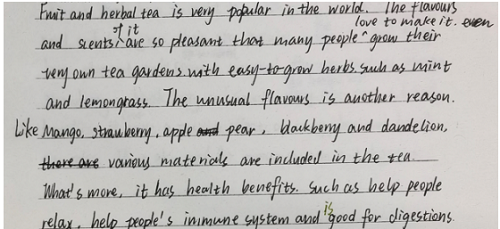 Fruit and herbal tea is very popular in the world. The flavours
and scents of it are so pleasant that many people love to make it. even grow their
very own tea gardens with easy-to-grow herbs such as mint
and lemongrass. The unusual flavours is another reason.
Like Mango, strawberry, apple and pear, blackberry and dandelion,
there are various materials are included in the tea.
What's more, it has health benefits. such as help people
relax, help people's immune system and is good for digestions.